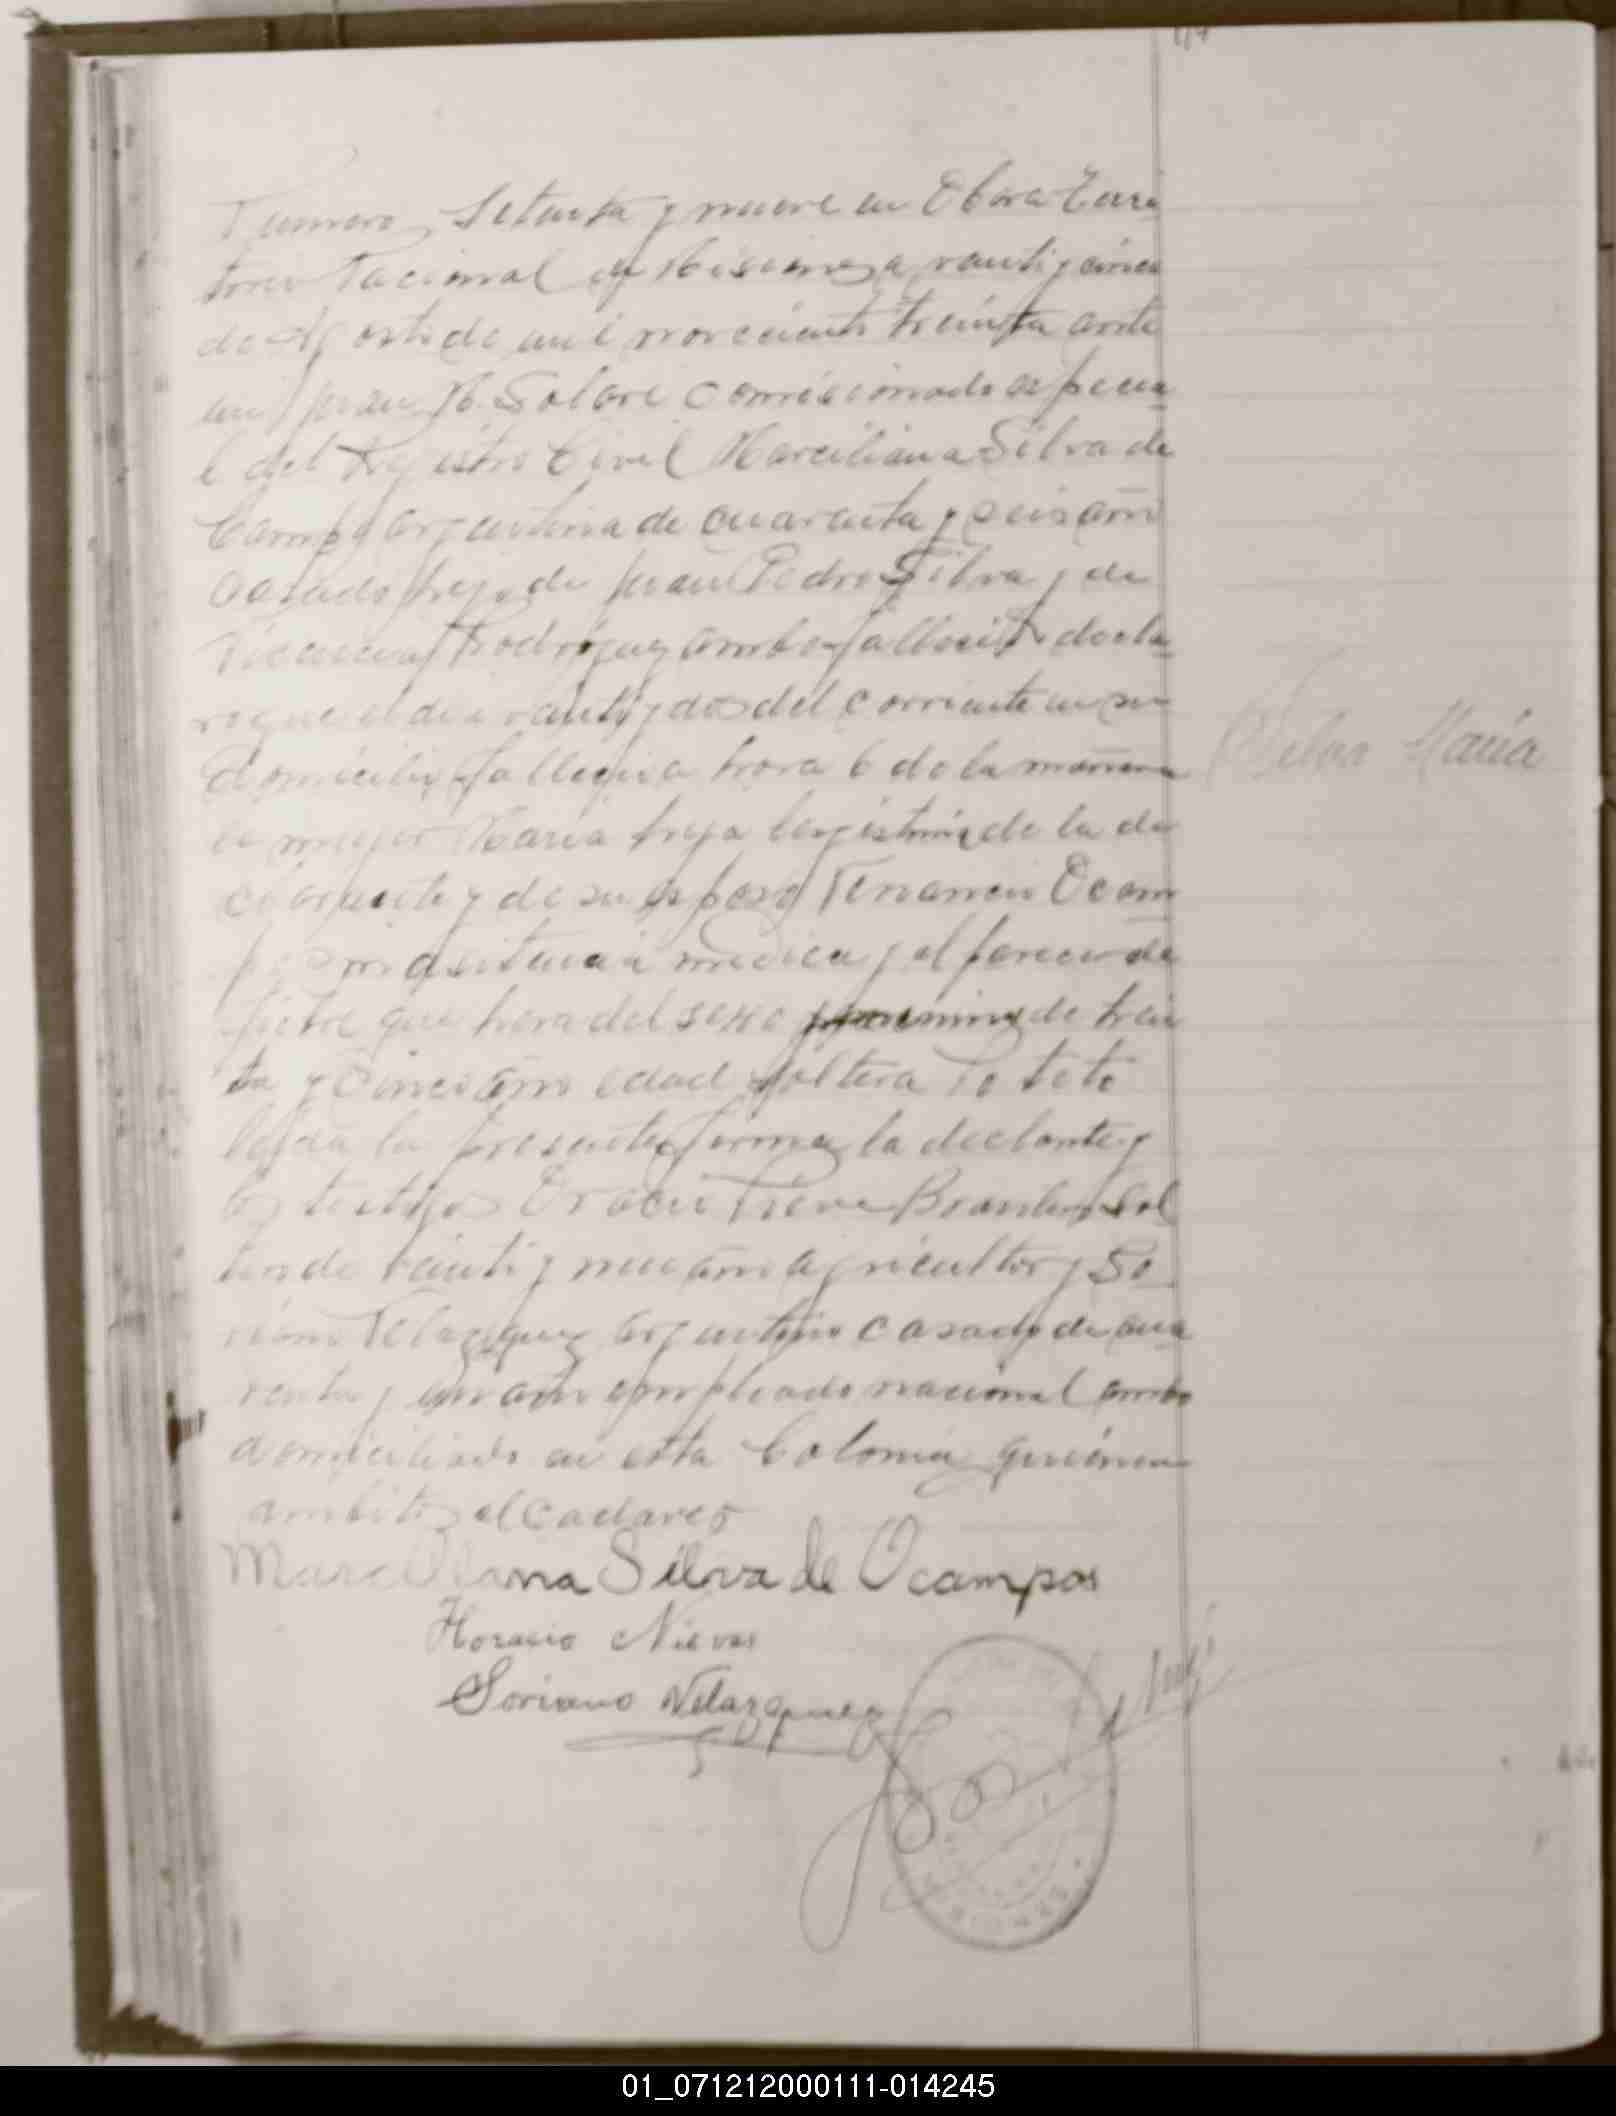 Numero Setenta y nueve en Obera Terri
torio Nacional de Misiones a veinti y cinco
de Agosto de mil novecientos treinta ante
mi Juan M. Solari comicionado espécia
l del Registro Civil Marciliana Silva de
Campo argentina de cuarenta y seis años
casado hija de Juan Pedro Silva y de
Rodriguez ambos fallecido decla
ro que el dia veinti y dos del corriente en su
domicilio fallecio a hora 6 de la mañana
la mujer Maria hija legistima de la de
clarante y de su esposo Venancio Ocam
po sin asistencia medica y al parecer de
fiebre que hera del sexo de trein
ta y cinco años edad soltera No testo
leida la presente firma la declante y
los testigos Oracio Nieve sol
tero de veinti y nueve años agricultor y So
riano Velazquez argentino casado de cua
renta y un año empleado nacional ambo
domiciliado en esta Colonia quiénes
ambito el cadaver
Marciliana Silva de Ocampos
Horacio Nieves
Soriano Velazquez
Maria
MISIONES
01_071212000111-014245